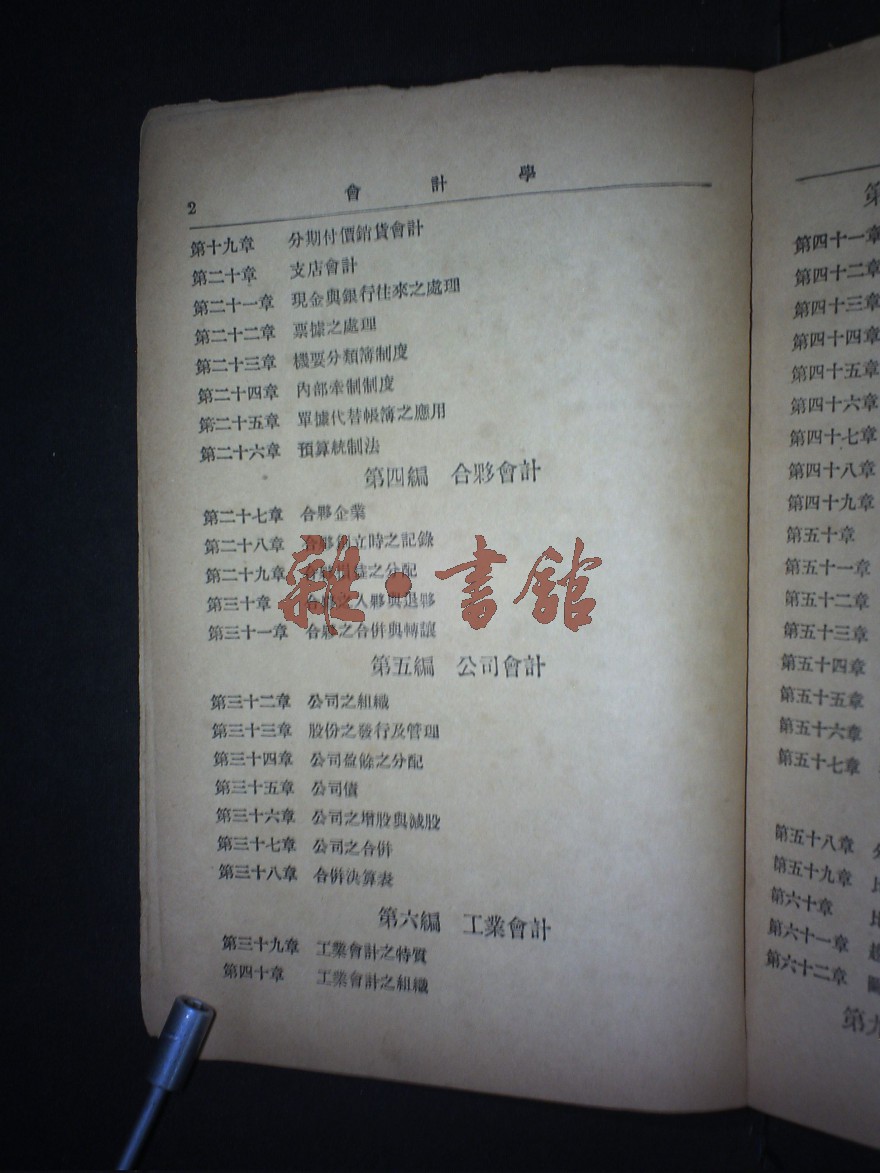 2 會計學
第十九章 分期付價銷貨會計
第二十章 支店會計
第二十一章 現金與銀行往來之處理
第二十二章 票據之處理
第二十三章 機要分類簿制度
第二十四章 內部牽制制度
第二十五章 單據代替帳簿之應用
第二十六章 預算統制法
第四編 合夥會計
第二十七章 合夥企業
第二十八章 合夥創立時之記錄
第二十九章 合夥損益之分配
第三十章 合夥之入夥與退夥
第三十一章 合夥之合併與轉讓
第五編 公司會計
第三十二章 公司之組織
第三十三章 股份之發行及管理
第三十四章 公司盈餘之分配
第三十五章 公司債
第三十六章 公司之增股與減股
第三十七章 公司之合併
第三十八章 合併決算表
第六編 工業會計
第三十九章 工業會計之特質
第四十章 工業會計之組織
雜·書館
第
第四十一章
第四十二章
第四十三章
第四十四章
第四十五章
第四十六章
第四十七章
第四十八章
第四十九章
第五十章
第五十一章
第五十二章
第五十三章
第五十四章
第五十五章
第五十六章
第五十七章
第五十八章
第五十九章 比
第六十章
第六十一章
第六十二章
第九